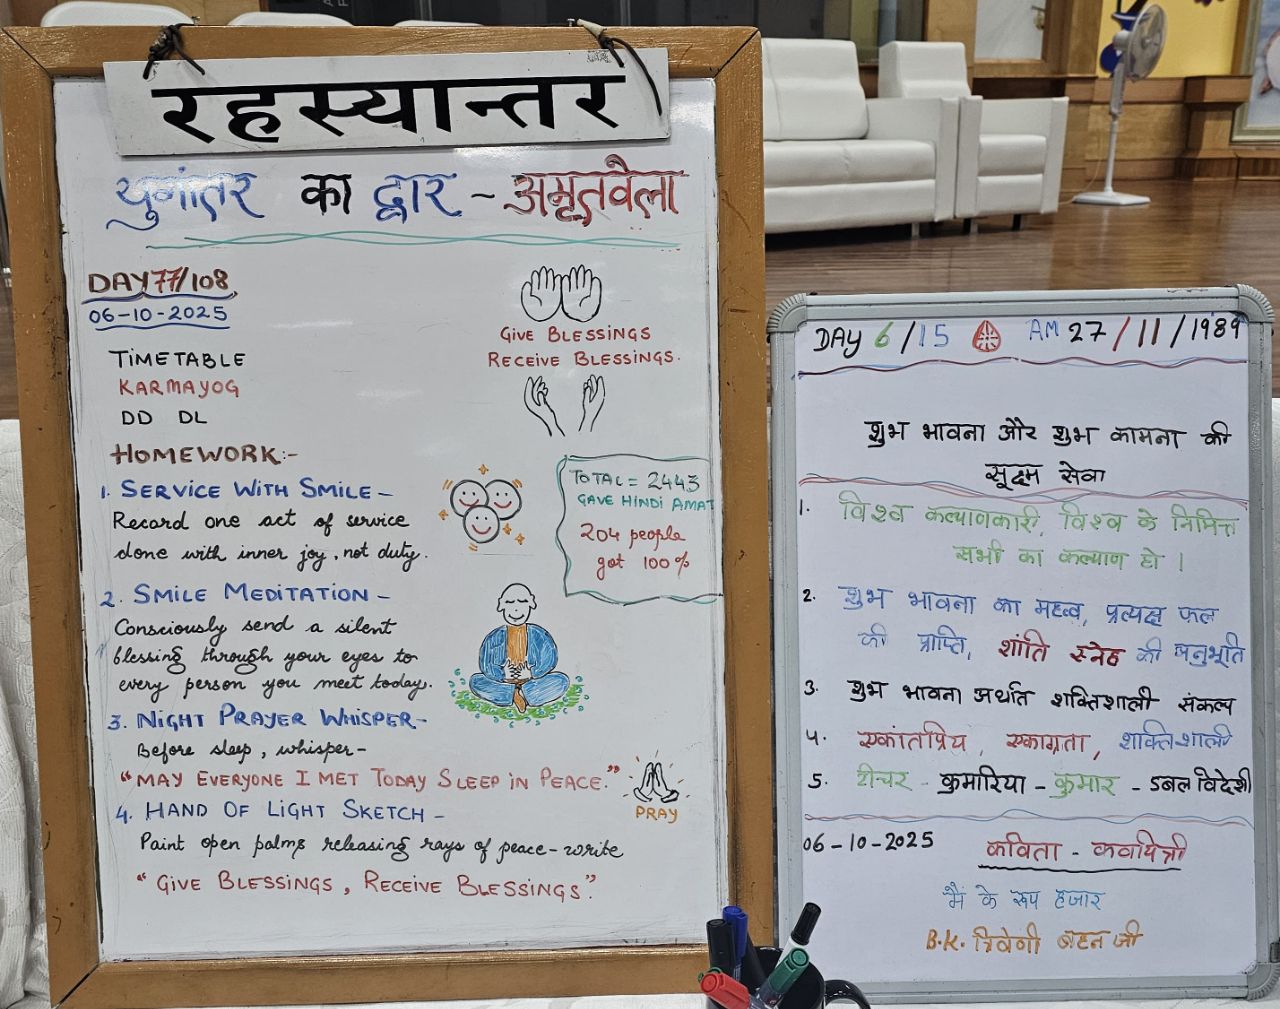 रहस्यान्तर
युगांतर का द्वार - अमृतवेला
DAY 77/108
06-10-2025
TIMETABLE
KARMAYOG
DD DL
GIVE BLESSINGS
RECEIVE BLESSINGS.
HOMEWORK:-
1. SERVICE WITH SMILE -
Record one act of service
done with inner joy, not duty.
TOTAL = 2443
GAVE HINDI AMAT
204 people
got 100%
2. SMILE MEDITATION -
Consciously send a silent
blessing through your eyes to
every person you meet today.
3. NIGHT PRAYER WHISPER-
Before sleep, whisper-
"MAY EVERYONE I MET TODAY SLEEP IN PEACE."
PRAY
4. HAND OF LIGHT SKETCH -
Paint open palms releasing rays of peace-write
"GIVE BLESSINGS, RECEIVE BLESSINGS."
DAY 6/15 AM 27/11/1989
शुभ भावना और शुभ कामना की
सूक्ष्म सेवा
1. विश्व कल्याणकारी, विश्व के निमित्त
सभी का कल्याण हो।
2. शुभ भावना का महत्व, प्रत्यक्ष फल
की प्राप्ति, शांति स्नेह की अनुभूति
3. शुभ भावना अर्थात शक्तिशाली संकल्प
4. एकांतप्रिय, एकाग्रता, शक्तिशाली
5. टीचर - कुमारिया - कुमार - डबल विदेशी
06-10-2025 कविता - कवयित्री
मैं के रूप हजार
B.K. त्रिवेणी बहन जी